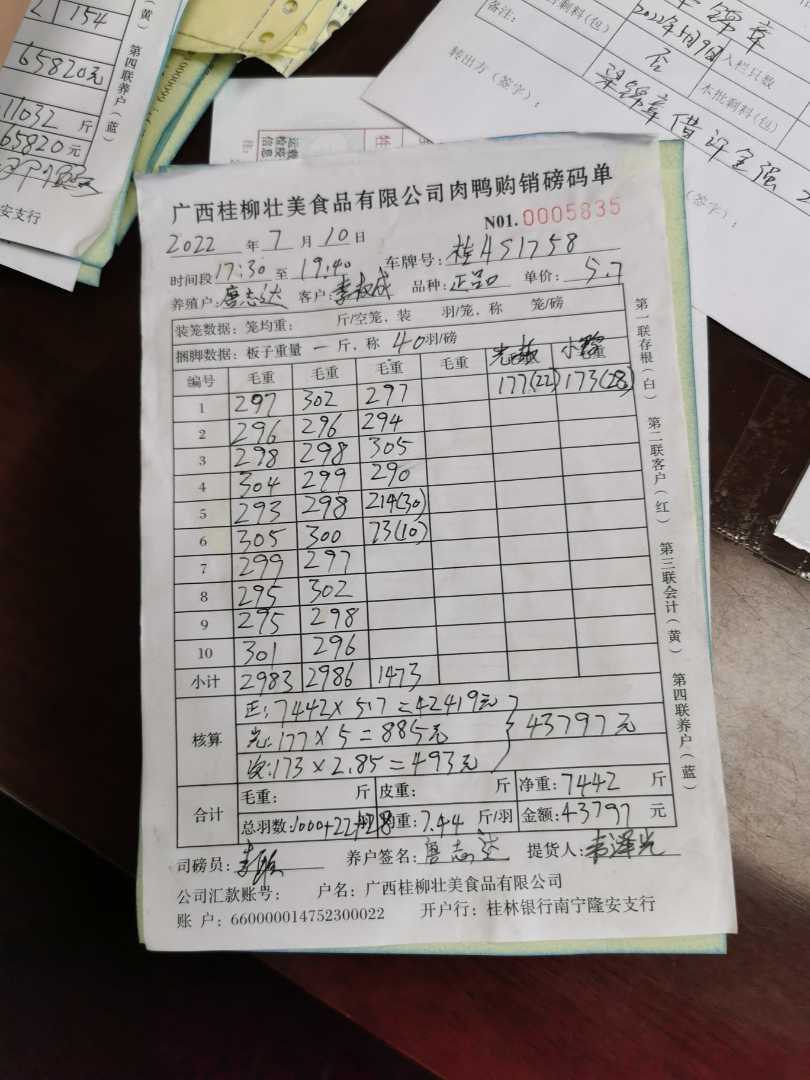 154
65820元
11032 斤
65820元
安支行
第四联养户(蓝)
备注:
2022年5月9日
否
入栏只数
本批剩料(包)
转出方(签字):
广西桂柳壮美食品有限公司肉鸭购销磅码单
N01. 0005835
2022 年 7 月 10 日
时间段 17:30 至 19:40 车牌号: 桂A51758
养殖户: 唐志达 客户: 李权成 品种: 正品 单价: 5.7
装笼数据: 笼均重: 斤/空笼, 装 羽/笼, 称 笼/磅
捆脚数据: 板子重量 一 斤, 称 40 羽/磅
编号 毛重 毛重 毛重 毛重
1 297 302 297 177(22) 173(28)
2 296 296 294
3 298 298 305
4 304 299 290
5 293 298 214(30)
6 305 300 73(10)
7 299 297
8 295 302
9 295 298
10 301 296
小计 2983 2986 1473
核算
正: 7442×5.7=42419元
光: 177×5=885元
次: 173×2.85=493元
43797元
合计 毛重: 斤 皮重: 斤 净重: 7442 斤
总羽数: 1000+22+28 重: 7.44 斤/羽 金额: 43797 元
司磅员: 养户签名: 唐志达 提货人: 韦泽光
公司汇款账号: 户名: 广西桂柳壮美食品有限公司
账 户: 660000014752300022 开户行: 桂林银行南宁隆安支行
第一联存根(白)
第二联客户(红)
第三联会计(黄)
第四联养户(蓝)